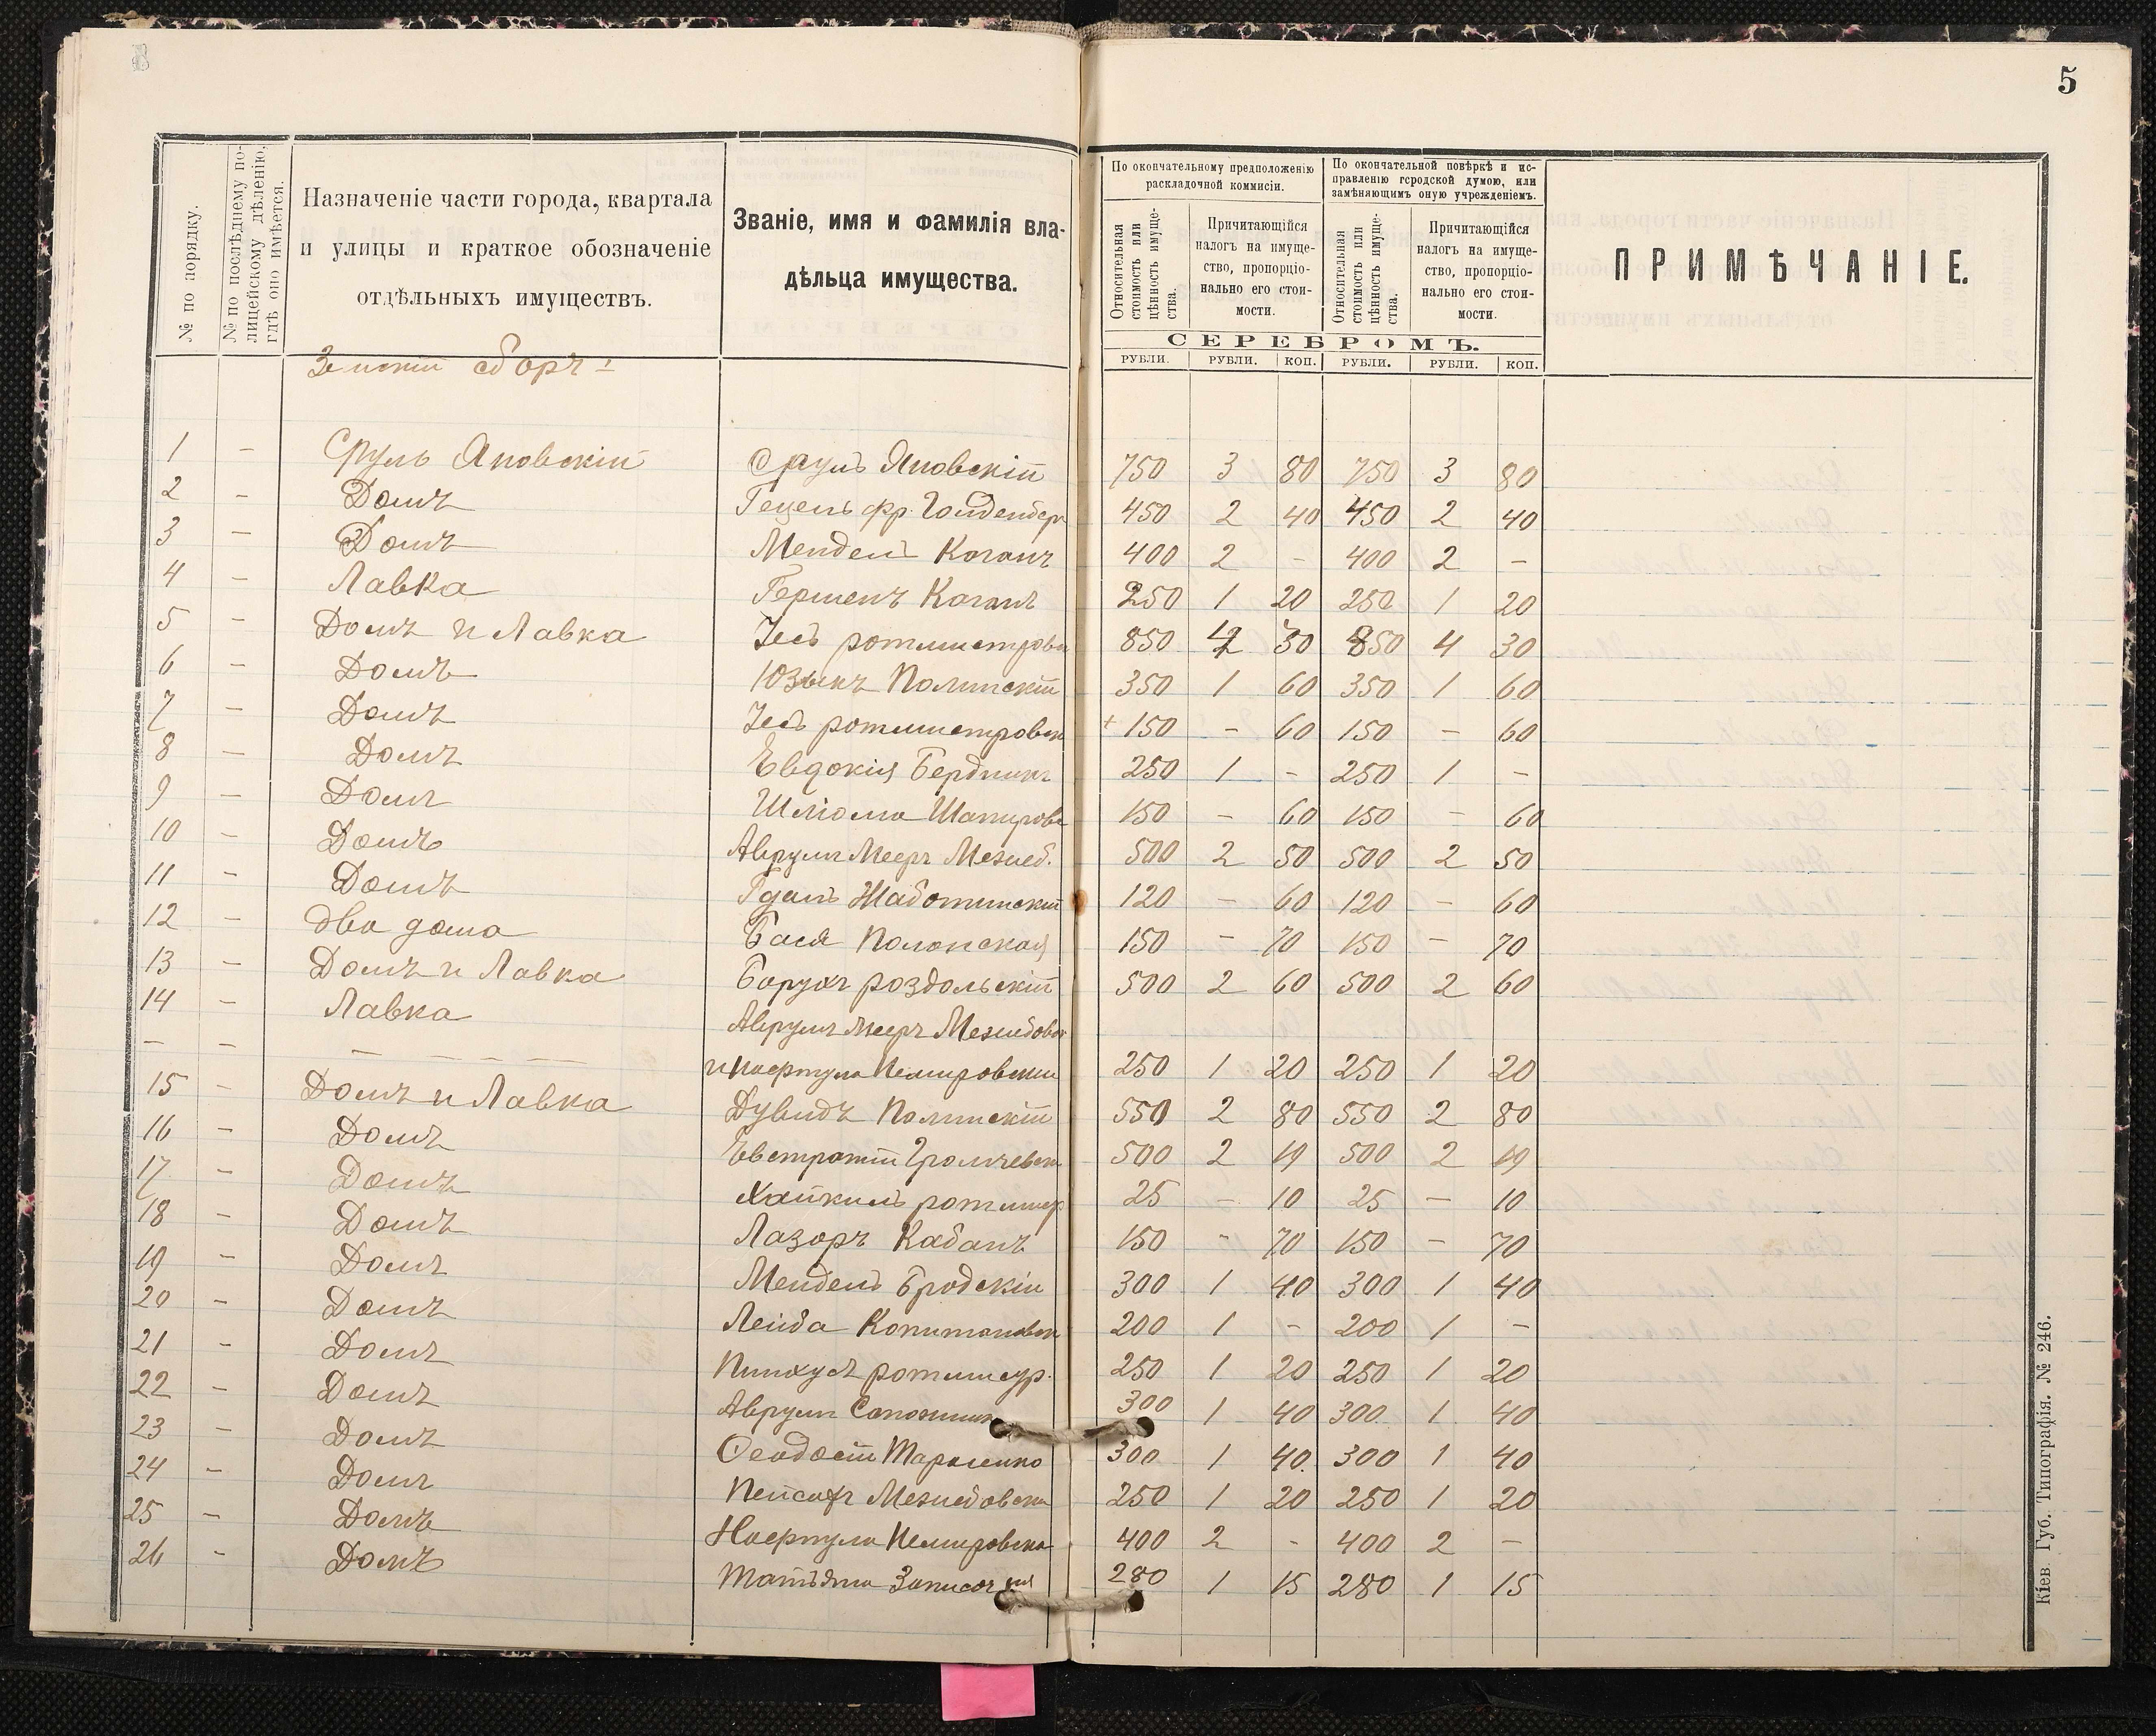 5
№ по порядку.
№ по послѣднему по-
лицейскому дѣленію,
гдѣ оно имѣется.
Назначеніе части города, квартала
и улицы и краткое обозначеніе
отдѣльныхъ имуществъ.
Званіе, имя и фамилія вла-
дѣльца имущества.
По окончательному предположенію
раскладочной комисіи.
По окончательной повѣркѣ и ис-
правленію городской думою, или
замѣняющимъ оную учрежденіемъ.
Относительная
стоимость или
цѣнность имуще-
ства.
Причитающійся
налогъ на имуще-
ство, пропорціо-
нально его стои-
мости.
Относительная
стоимость или
цѣнность имуще-
ства.
Причитающійся
налогъ на имуще-
ство, пропорціо-
нально его стои-
мости.
ПРИМѢЧАНІЕ.
СЕРЕБРОМЪ.
РУБЛИ. РУБЛИ. КОП. РУБЛИ. РУБЛИ. КОП.
сборъ
1 - Сруль Яновскій Сруль Яновскій 750 3 80 750 3 80
2 - Домъ Гецель фр. Голденберг 450 2 40 450 2 40
3 - Домъ Мендель Коганъ 400 2 - 400 2 -
4 - Лавка Гершенъ Коганъ 250 1 20 250 1 20
5 - Домъ и Лавка ротмистровк 850 4 30 850 4 30
6 - Домъ Полинскій 350 1 60 350 1 60
7 - Домъ ротмистровск + 150 - 60 150 - 60
8 - Домъ Евдокія Бердникъ 250 1 - 250 1 -
9 - Домъ Шліома Шапирова 150 - 60 150 - 60
10 - Домъ Аврумъ Мееръ Межиб. 500 2 50 500 2 50
11 - Домъ Гдаль Жаботинскій 120 - 60 120 - 60
12 - два дома Бася Полонская 150 - 70 150 - 70
13 - Домъ и Лавка Борухъ роздольскій 500 2 60 500 2 60
14 - Лавка Аврумъ Мееръ Межибовск
- - - - - - - и Немировскій 250 1 20 250 1 20
15 - Домъ и Лавка Дувидъ Полинскій 550 2 80 550 2 80
16 - Домъ Евстратій Громчевск 500 2 49 500 2 49
17 - Домъ Хайкилъ ротмистр 25 - 10 25 - 10
18 - Домъ Лазоръ Кабанъ 150 - 70 150 - 70
19 - Домъ Мендель Бродскій 300 1 40 300 1 40
20 - Домъ Лейба Копитановск 200 1 - 200 1 -
21 - Домъ Пинхусъ ротмистр. 250 1 20 250 1 20
22 - Домъ Аврумъ Сапожник 300 1 40 300 1 40
23 - Домъ Феодосій Тарасенко 300 1 40 300 1 40
24 - Домъ Пейсахъ Межибовски 250 1 20 250 1 20
25 - Домъ Немировска 400 2 - 400 2 -
26 - Домъ Татьяна 280 1 15 280 1 15
Кіев. Губ. Типографія. № 246.